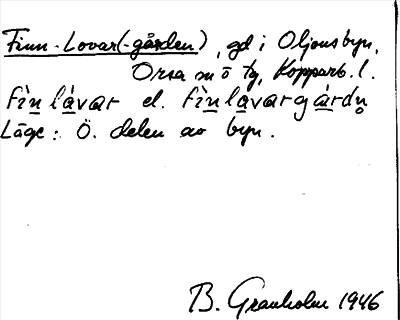 Finn-Lovar(-gården), gd i Oljonsbyn,
Orsa sn o tg, Kopparb. l.
fìn lávar el. fìnlavargárdn̥
Läge: Ö. delen av byn.
B. Granholm 1946